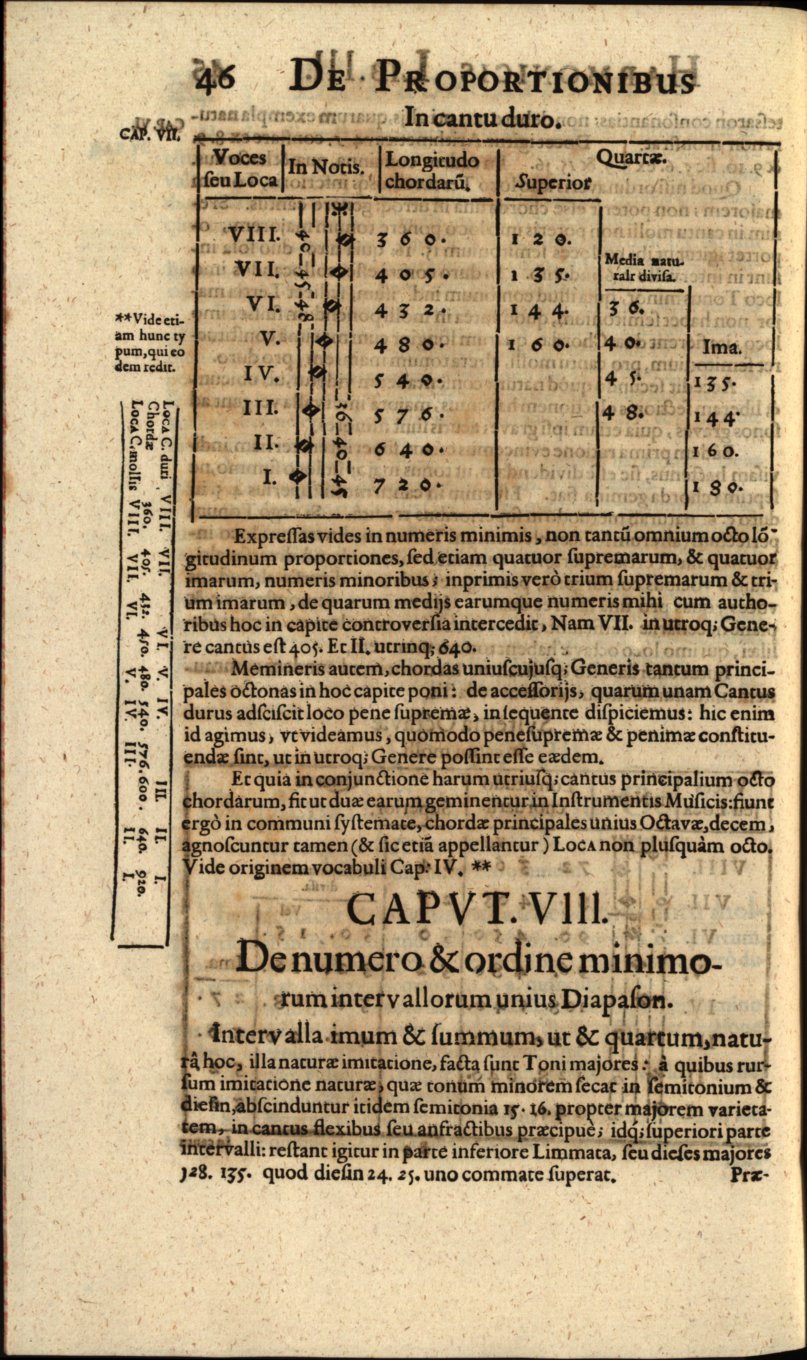 46 DE PROPORTIONIBUS
In cantu duro.
CAP. VII.
Voces seu Loca | In Notis. | Longitudo chordarū. | Quartæ.
Superior
VIII. 360. 120.
Media naturalr divisa.
VII. 405. 135.
VI. 432. 144. 36.
V. 480. 160. 40. Ima.
IV. 540. 45. 135.
III. 576. 48. 144.
II. 640. 160.
I. 720. 180.
40-45-48
36-40-45
**Vide eti-
am hunc ty
pum, qui eo
dem redit.
Loca C. duri VIII. VII. VI. V. IV. III. II. I.
Chordæ 360. 405. 432. 450. 480. 540. 576. 600. 640. 920.
Loca C. mollis VIII. VII. VI. V. IV. III. II. I.
Expreſſas vides in numeris minimis, non tantū omnium octo lō-
gitudinum proportiones, ſed etiam quatuor ſupremarum, & quatuor
imarum, numeris minoribus; inprimis verò trium ſupremarum & tri-
um imarum, de quarum medijs earumque numeris mihi cum autho-
ribus hoc in capite controverſia intercedit, Nam VII. in utroq; Gene-
re cantus eſt 405. Et II. utrinq; 640.
Memineris autem, chordas uniuſcujuſq; Generis tantum princi-
pales octonas in hoc capite poni: de acceſſorijs, quarum unam Cantus
durus adſciſcit loco pene ſupremæ, in ſequente diſpiciemus: hic enim
id agimus, vt videamus, quomodo peneſupremæ & penimæ conſtitu-
endæ ſint, ut in utroq; Genere poſſint eſſe eædem.
Et quia in conjunctione harum utriuſq; cantus principalium octo
chordarum, fit ut duæ earum geminentur in Inſtrumentis Muſicis: fiunt
ergò in communi ſyſtemate, chordæ principales unius Octavæ, decem,
agnoſcuntur tamen (& ſic etiā appellantur) LOCA non pluſquàm octo.
Vide originem vocabuli Cap. IV. **
CAPVT. VIII.
De numero & ordine minimo-
rum intervallorum unius Diapaſon.
Intervalla imum & ſummum, ut & quartum, natu-
râ hoc, illa naturæ imitatione, facta ſunt Toni majores: à quibus rur-
ſum imitatione naturæ, quæ tonum minorem ſecat in ſemitonium &
dieſin, abſcinduntur itidem ſemitonia 15. 16. propter majorem varieta-
tem, in cantus flexibus ſeu anfractibus præcipuè; idq; ſuperiori parte
intervalli: reſtant igitur in parte inferiore Limmata, ſeu dieſes majores
128. 135. quod dieſin 24. 25. uno commate ſuperat.
Præ-